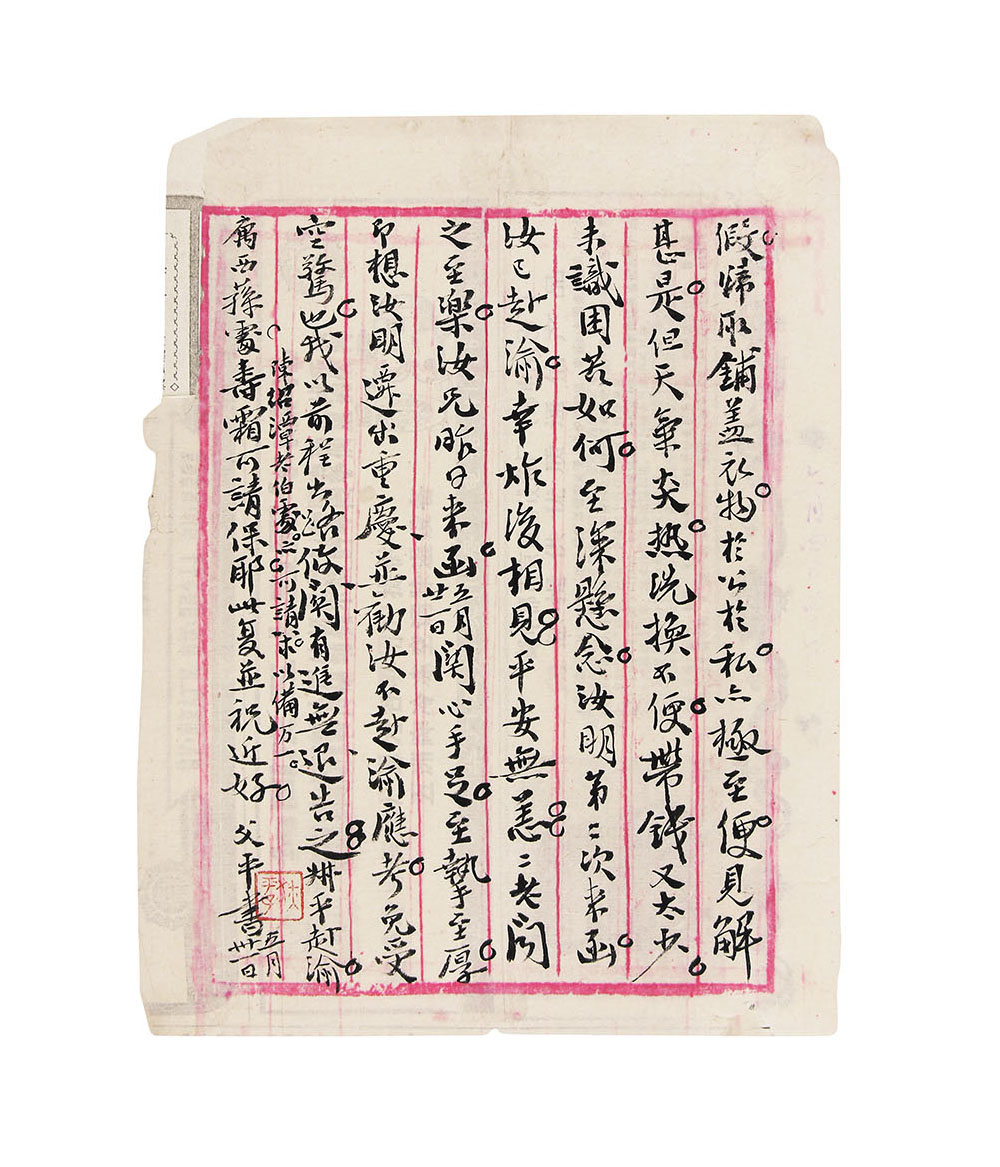 假歸取鋪蓋衣物。於公於私。亦極至便。見解
甚是。但天氣炎热。洗換不便。帶錢又太少。
未識困苦如何。至深懸念。汝明第二次來函。
汝已赴渝。幸炸後相見。平安無恙。二老閱
之至樂。汝兄昨日來函。五月廿一日関心手足。至摯至厚。
即想汝明遷出重慶、並勸汝不赴渝應考。免受
空驚也。我以前程出路攸関、有進無退告之。
廣西蘇處壽霜可請保耶。此复並祝近好。父平書 五月卅一日
陳紹潭老伯處。亦可請求。以備万一。